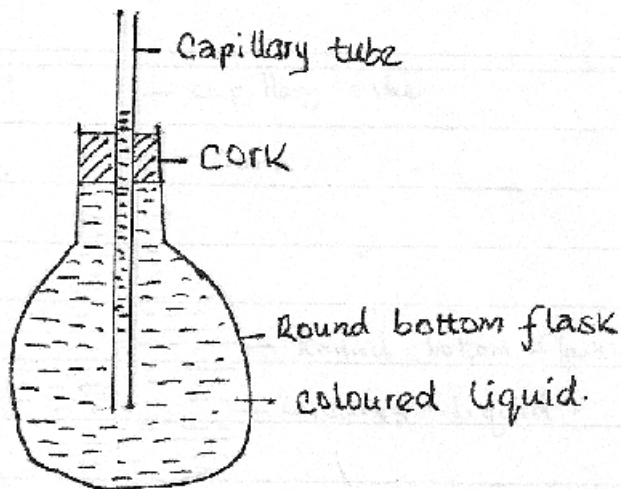 Capillary tube
Cork
Round bottom flask
coloured liquid.